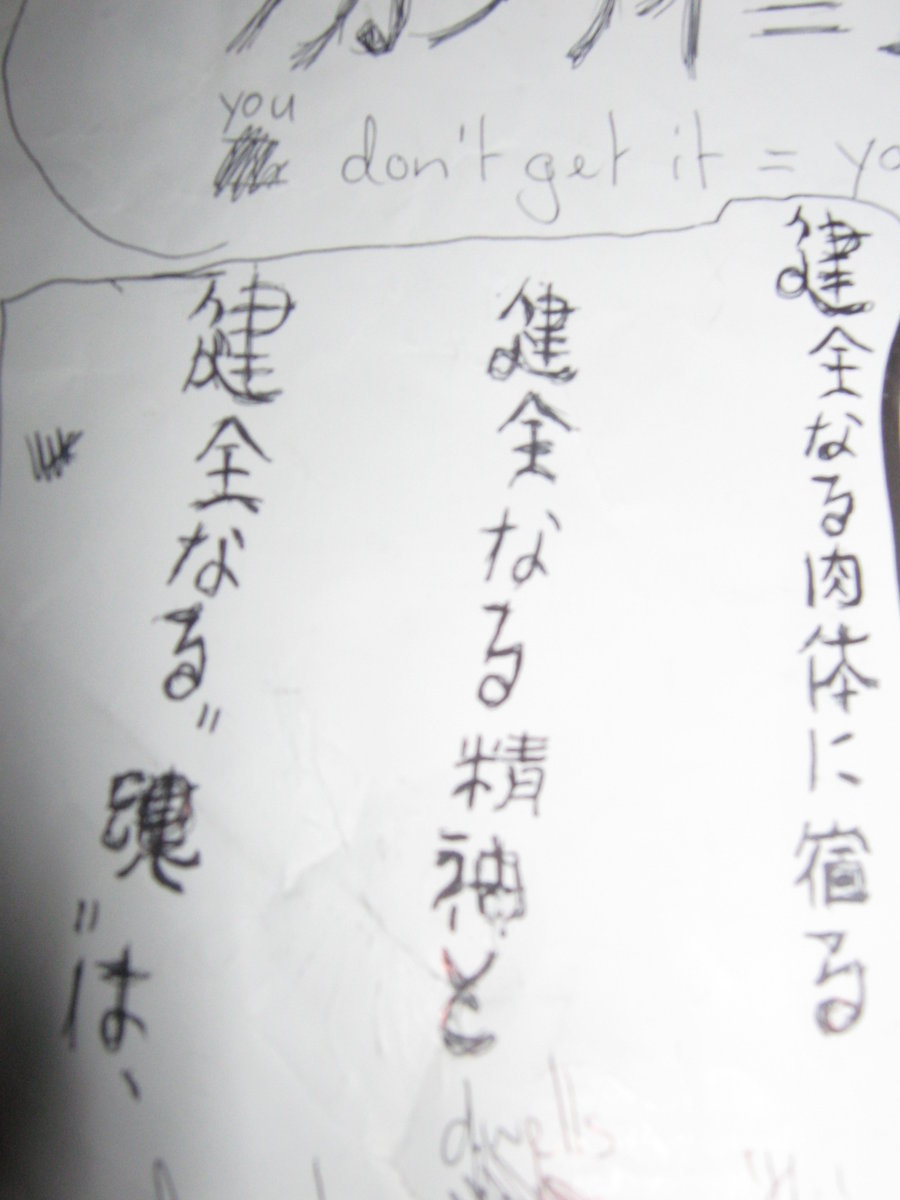 you
don't get it =
健全なる"魂"は、
健全なる精神と
健全なる肉体に宿る
dwells